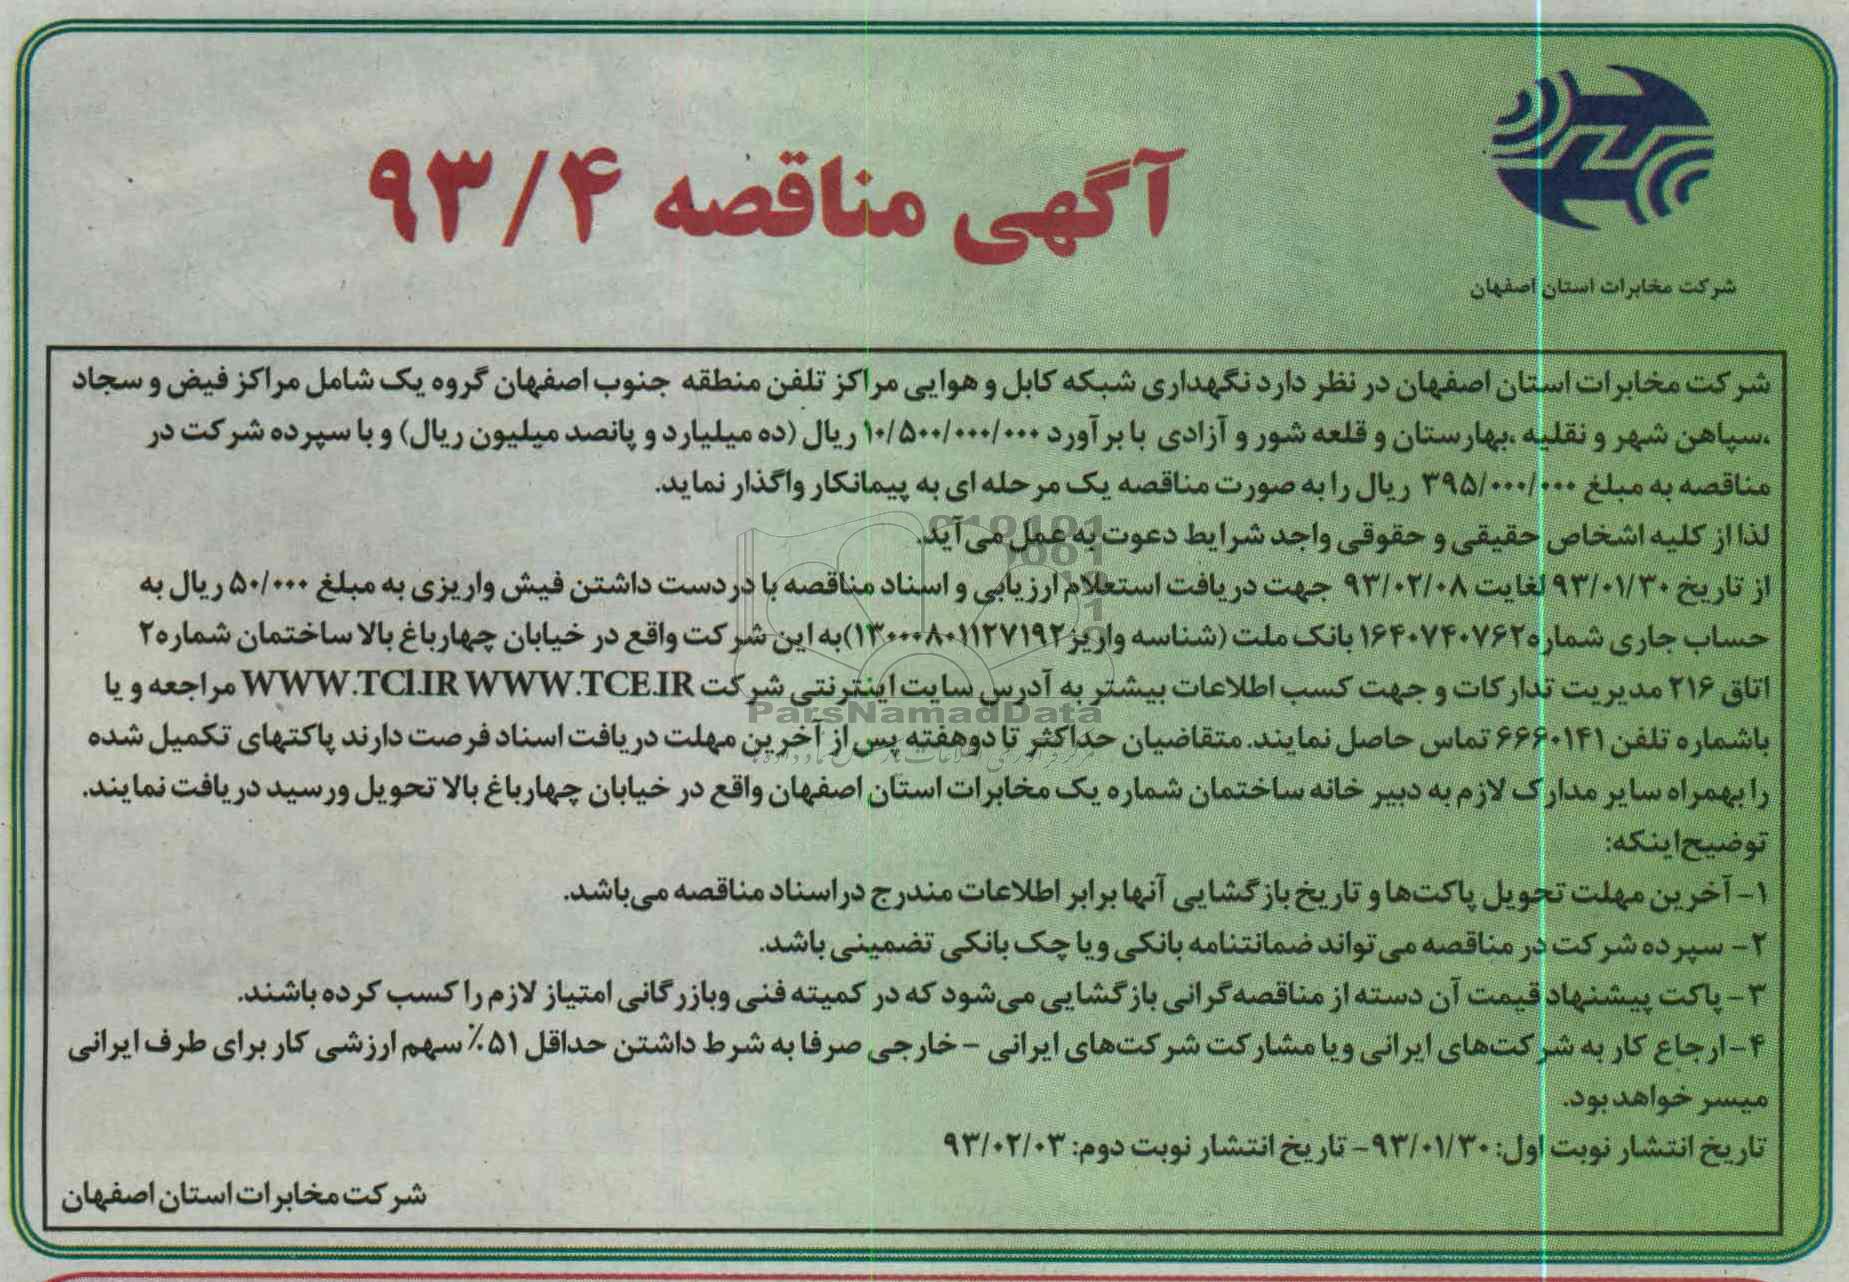 شرکت مخابرات استان اصفهان
آگهی مناقصه ۹۳/۴
شرکت مخابرات استان اصفهان در نظر دارد نگهداری شبکه کابل و هوایی مراکز تلفن منطقه جنوب اصفهان گروه یک شامل مراکز فیض و سجاد
،سپاهن شهر و نقلیه ،بهارستان و قلعه شور و آزادی با برآورد ۱۰/۵۰۰/۰۰۰/۰۰۰ ریال (ده میلیارد و پانصد میلیون ریال) و با سپرده شرکت در
مناقصه به مبلغ ۳۹۵/۰۰۰/۰۰۰ ریال را به صورت مناقصه یک مرحله ای به پیمانکار واگذار نماید.
لذا از کلیه اشخاص حقیقی و حقوقی واجد شرایط دعوت به عمل می‌آید.
از تاریخ ۹۳/۰۱/۳۰ لغایت ۹۳/۰۲/۰۸ جهت دریافت استعلام ارزیابی و اسناد مناقصه با در دست داشتن فیش واریزی به مبلغ ۵۰/۰۰۰ ریال به
حساب جاری شماره ۱۶۴۰۷۴۰۷۶۲ بانک ملت (شناسه واریز ۱۳۰۰۰۸۰۱۱۲۷۱۹۲) به این شرکت واقع در خیابان چهارباغ بالا ساختمان شماره ۲
اتاق ۲۱۶ مدیریت تدارکات و جهت کسب اطلاعات بیشتر به آدرس سایت اینترنتی شرکت WWW.TCI.IR WWW.TCE.IR مراجعه و یا
باشماره تلفن ۶۶۶۰۱۴۱ تماس حاصل نمایند. متقاضیان حداکثر تا دوهفته پس از آخرین مهلت دریافت اسناد فرصت دارند پاکتهای تکمیل شده
را بهمراه سایر مدارک لازم به دبیر خانه ساختمان شماره یک مخابرات استان اصفهان واقع در خیابان چهارباغ بالا تحویل ورسید دریافت نمایند.
توضیح‌اینکه:
۱- آخرین مهلت تحویل پاکت‌ها و تاریخ بازگشایی آنها برابر اطلاعات مندرج در اسناد مناقصه می‌باشد.
۲- سپرده شرکت در مناقصه می تواند ضمانتنامه بانکی ویا چک بانکی تضمینی باشد.
۳- پاکت پیشنهاد قیمت آن دسته از مناقصه‌گرانی بازگشایی می‌شود که در کمیته فنی وبازرگانی امتیاز لازم را کسب کرده باشند.
۴-ارجاع کار به شرکت‌های ایرانی ویا مشارکت شرکت‌های ایرانی - خارجی صرفا به شرط داشتن حداقل ۵۱٪ سهم ارزشی کار برای طرف ایرانی
میسر خواهد بود.
تاریخ انتشار نوبت اول: ۹۳/۰۱/۳۰- تاریخ انتشار نوبت دوم: ۹۳/۰۲/۰۳
شرکت مخابرات استان اصفهان
ParsNamadData